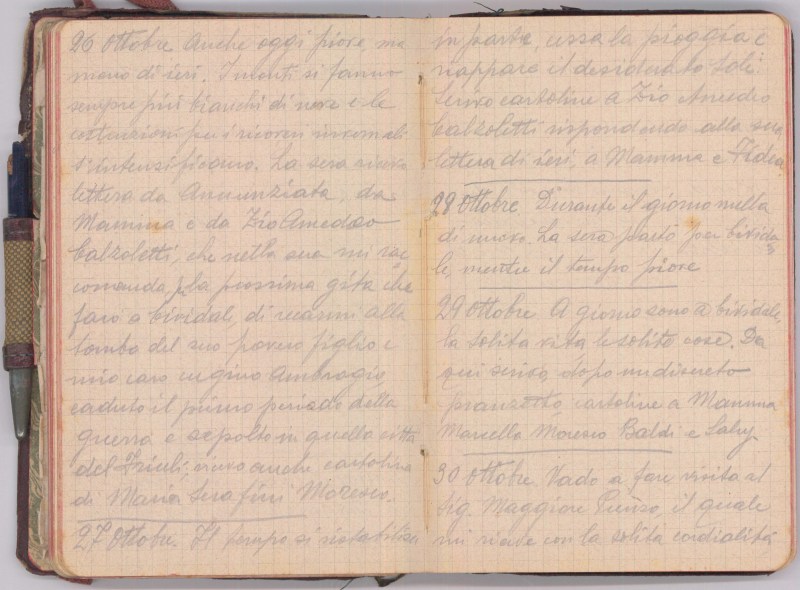 26 Ottobre Anche oggi piove ma
meno di ieri. I monti si fanno
sempre più bianchi di neve e le
costruzioni per i ricoveri invernali
s'intensificano. La sera ricevo
lettera da Annunziata, da
Mamma e da Zio Amedeo
Calzoletti, che nella sua mi rac
comanda, la prossima gita che
farò a Cividale, di recarmi alla
tomba del suo povero figlio e
mio caro cugino Ambrogio,
caduto il primo periodo della
guerra e sepolto in quella città
del Friuli, ricevo anche cartolina
di Maria Serafini Moresco.
27 Ottobre. Il tempo si ristabilisce
in parte, cessa la pioggia e
riappare il desiderato sole.
Scrivo cartoline a Zio Amedeo
Calzoletti rispondendo alla sua
lettera di ieri, a Mamma e
28 Ottobre Durante il giorno nulla
di nuovo. La sera parto per Civida
le, mentre il tempo piove
29 Ottobre A giorno sono a Cividale,
la solita vita le solite cose. Da
qui scrivo, dopo un discreto
pranzetto, cartoline a Mamma
Marcella Moresco Baldi e
30 Ottobre. Vado a fare visita al
Sig. Maggiore il quale
mi riceve con la solita cordialità